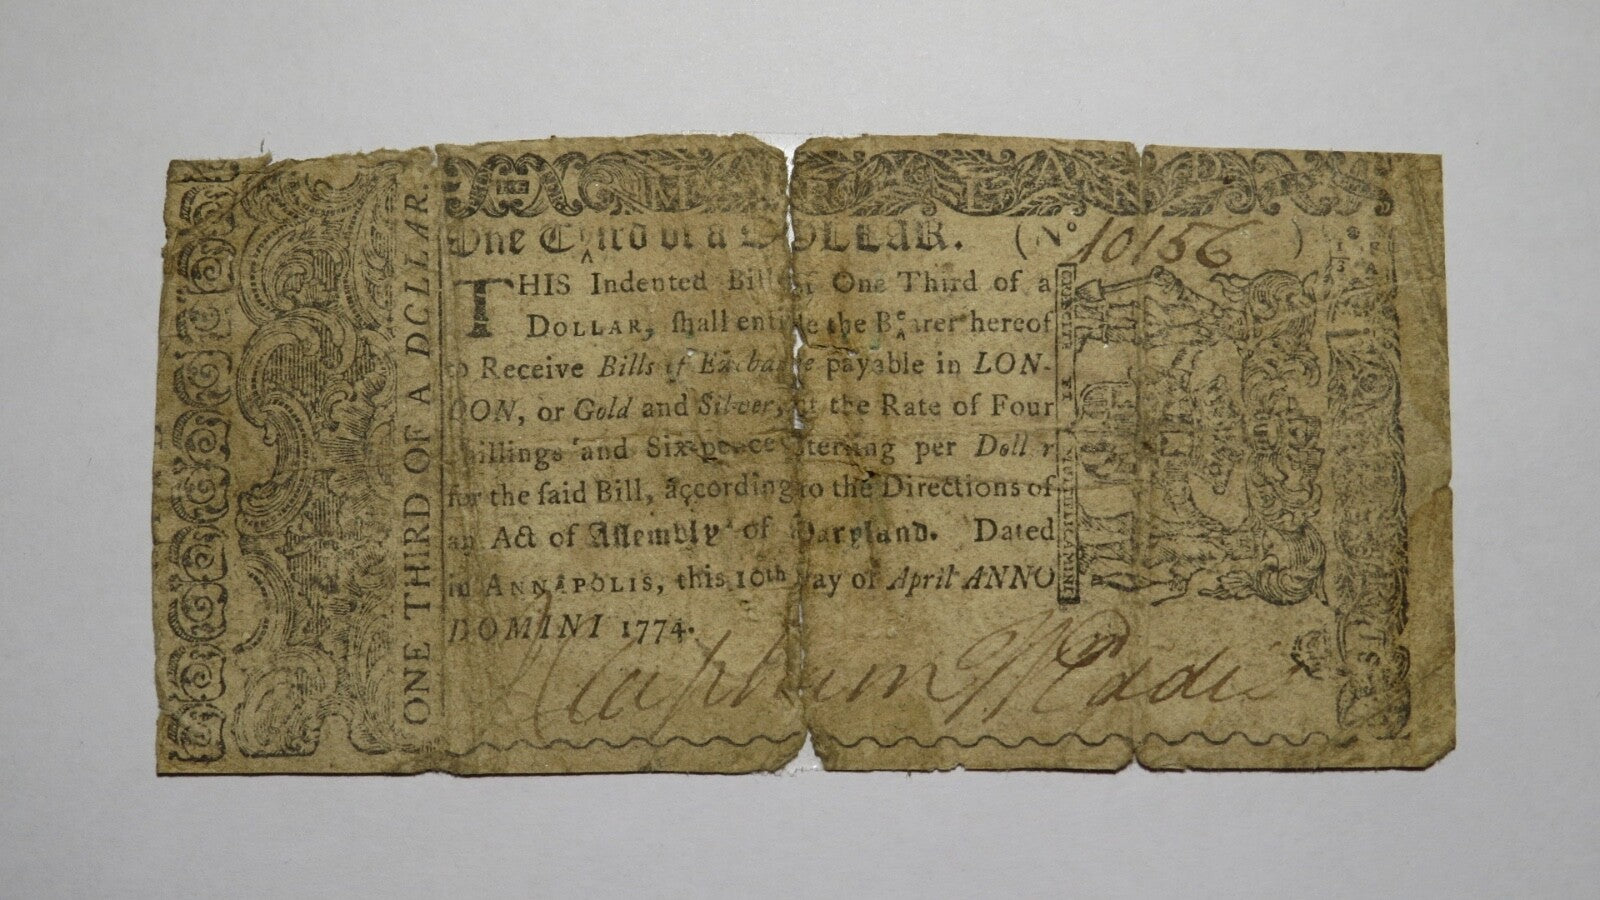 ONE THIRD OF A DOLLAR.
MARYLA
One Third of a DOLLAR. (No 10156 )
THIS Indented Bill of One Third of a
DOLLAR, ſhall entitle the Bearer hereof
to Receive Bills of Exchange payable in LON-
DON, or Gold and Silver, at the Rate of Four
Shillings and Six-pence Sterling per Dollar
for the ſaid Bill, according to the Directions of
an Act of Aſſembly of Maryland. Dated
in ANNAPOLIS, this 10th Day of April ANNO
DOMINI 1774.
CRESCITE ET MULTIPLICAMINI
Wm Eddis